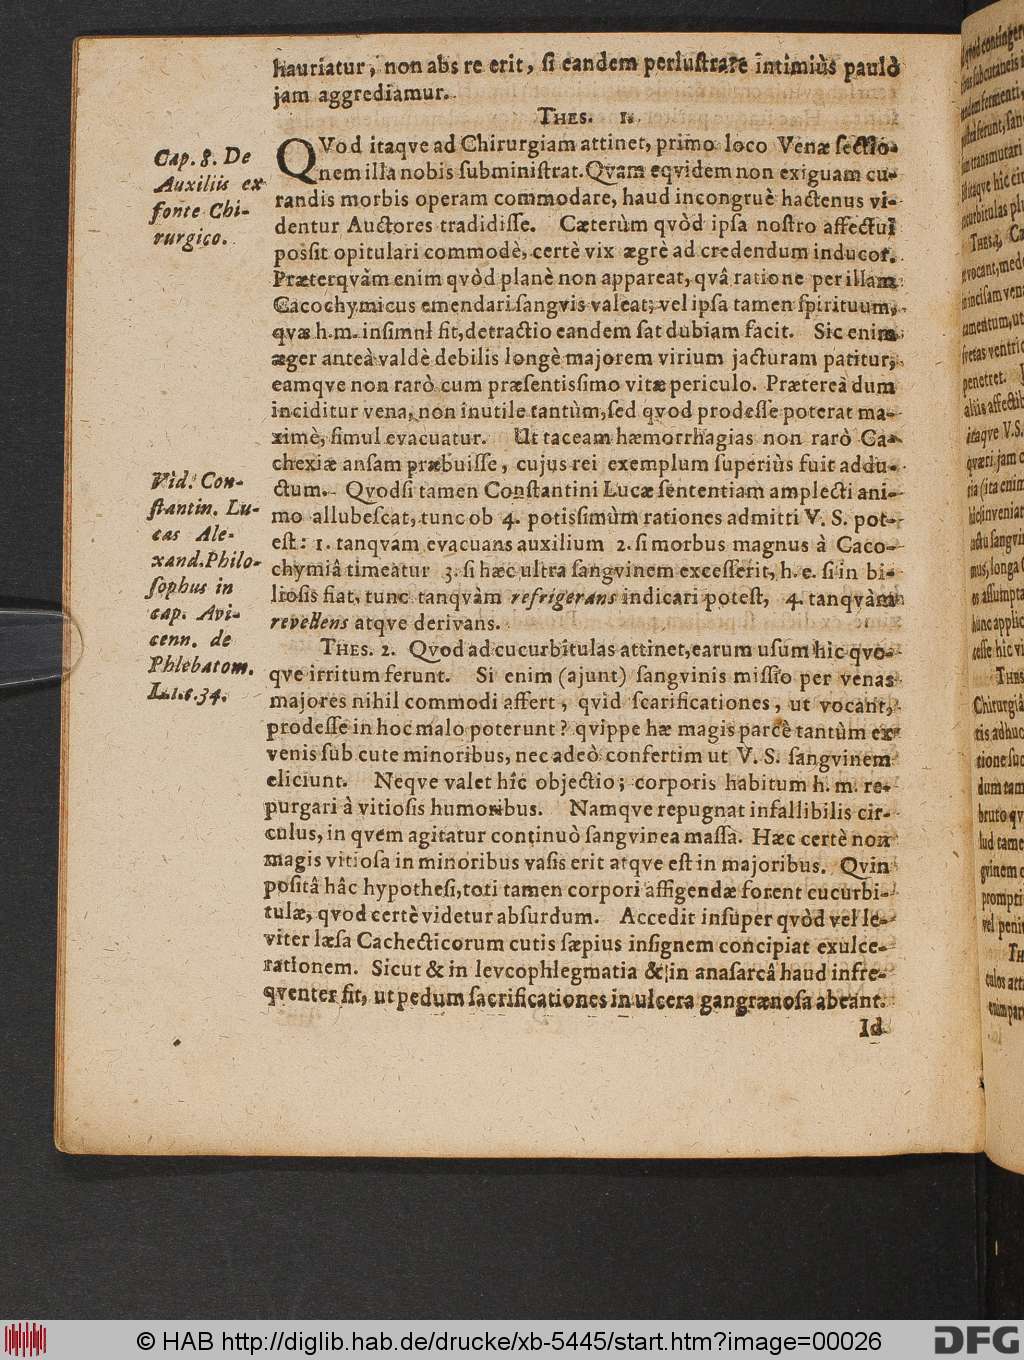 hauriatur, non abs re erit, ſi eandem perluſtrare intimiùs paulò
jam aggrediamur.
THES. 1.
Cap. 8. De
Auxiliis ex
fonte Chi-
rurgico.
QVod itaqve ad Chirurgiam attinet, primo loco Venæ ſectio-
nem illa nobis ſubminiſtrat. Qvam eqvidem non exiguam cu-
randis morbis operam commodare, haud incongruè hactenus vi-
dentur Auctores tradidiſſe. Cæterùm qvòd ipſa noſtro affectui
poſſit opitulari commodè, certè vix ægrè ad credendum inducor.
Præterqvàm enim qvòd planè non appareat, qvâ ratione per illam
Cacochymicus emendari ſangvis valeat; vel ipſa tamen ſpirituum,
qvæ h.m. inſimul fit, detractio eandem ſat dubiam facit. Sic enim
æger anteà valdè debilis longè majorem virium jacturam patitur,
eamqve non rarò cum præſentiſſimo vitæ periculo. Prætereà dum
inciditur vena, non inutile tantùm, ſed qvod prodeſſe poterat ma-
ximè, ſimul evacuatur. Ut taceam hæmorrhagias non rarò Ca-
chexiæ anſam præbuiſſe, cujus rei exemplum ſuperiùs fuit addu-
ctum. Qvodſi tamen Conſtantini Lucæ ſententiam amplecti ani-
mo allubeſcat, tunc ob 4. potiſſimùm rationes admitti V. S. pot-
eſt: 1. tanqvam evacuans auxilium 2. ſi morbus magnus à Caco-
chymiâ timeatur 3. ſi hæc ultra ſangvinem exceſſerit, h. e. ſi in bi-
lioſis fiat, tunc tanqvàm refrigerans indicari poteſt, 4. tanqvàm
revellens atqve derivans.
Vid. Con-
ſtantin. Lu-
cas Ale-
xand. Philo-
ſophus in
cap. Avi-
cenn. de
Phlebatom.
L.1.c.34.
THES. 2. Qvod ad cucurbitulas attinet, earum uſum hîc qvo-
qve irritum ferunt. Si enim (ajunt) ſangvinis miſſio per venas
majores nihil commodi affert, qvid ſcarificationes, ut vocant,
prodeſſe in hoc malo poterunt? qvippe hæ magis parcè tantùm ex
venis ſub cute minoribus, nec adeò confertim ut V. S. ſangvinem
eliciunt. Neqve valet hîc objectio; corporis habitum h. m. re-
purgari â vitioſis humoribus. Namqve repugnat infallibilis cir-
culus, in qvem agitatur continuò ſangvinea maſſa. Hæc certè non
magis vitioſa in minoribus vaſis erit atqve eſt in majoribus. Qvin
poſitâ hâc hypotheſi, toti tamen corpori affigendæ forent cucurbi-
tulæ, qvod certè videtur abſurdum. Accedit inſuper qvòd vel le-
viter læſa Cachecticorum cutis ſæpius inſignem concipiat exulce-
rationem. Sicut & in levcophlegmatia & in anaſarcâ haud infre-
qventer fit, ut pedum ſacrificationes in ulcera gangrænoſa abeant.
Id
© HAB http://diglib.hab.de/drucke/xb-5445/start.htm?image=00026
DFG